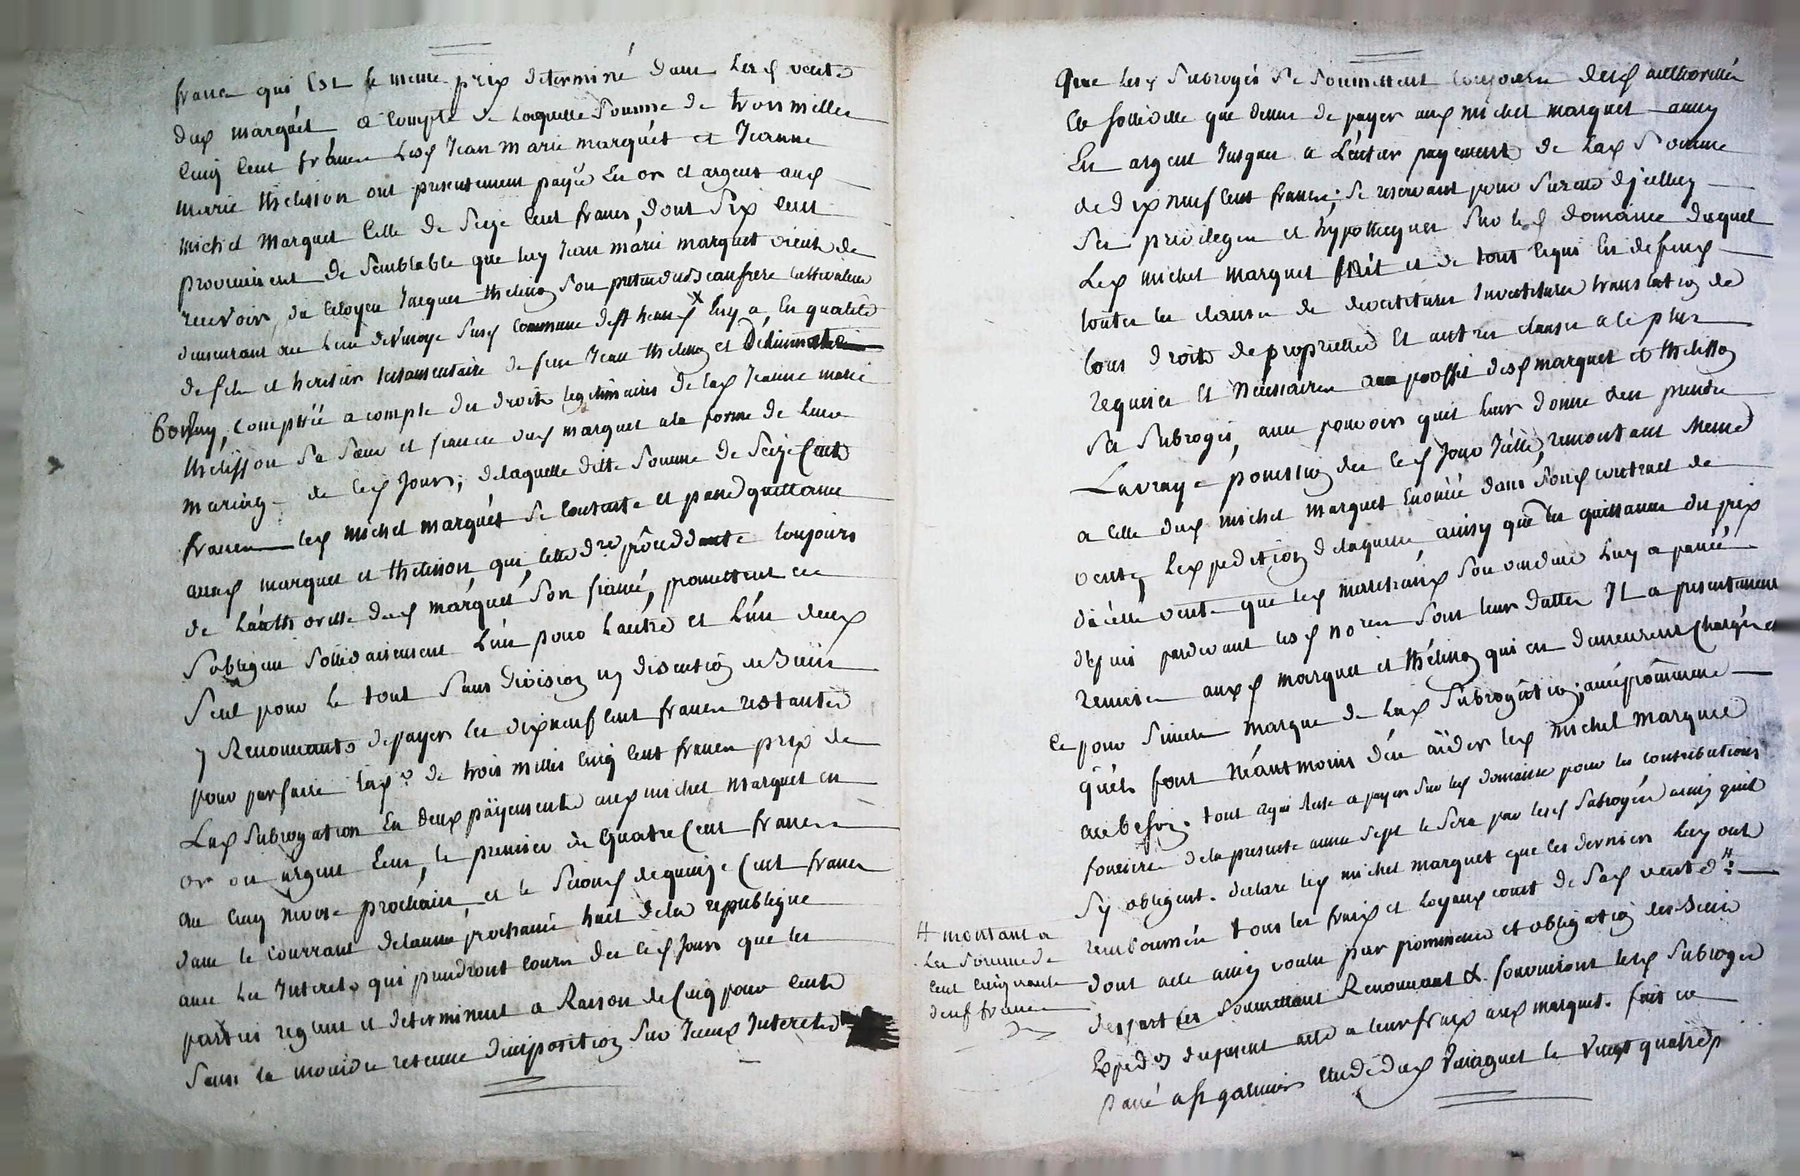 francs qui Est le meme prix determiné dans Les d. vente
dud. marquét a Compte de Laquelle Somme de trois milles
Cinq Cent francs Lesd. Jean Marie marquét et Jeanne
marie thelisson ont presentement payé En or et argent aud.
michel marquet Celle de Seize Cent francs, dont Six Cent
proviennent de Semblable que luy Jean marie marquet vient de
recevoir, du Citoyen Jacques thelisson Son pretendu beaufrere Cultivateur
demeurant au Lieu de Susd. Commune de st. heand X
de fils et heritier testamentaire de feu Jean thelisson et
Comptée a compte des droits legitimaires de lad. Jeanne marie
thelisson Sa Sœur et fiancée dud. marquet a la forme de Leur
mariage de Ced. Jour; de laquelle ditte Somme de Seize Cent
francs led. michel marquét Se Contente et passe quittance
auxd. marquet et thelisson, qui, cette dre. procedante toujours
de Láuthorité dud. marquet, Son fiancé, promettent et
S'obligent Sollidairement L'un pour L'autre et L'un deux
Seul pour le tout Sans Division ny discution de Biens
y Renonçants de payer les dix neuf Cent francs restants
pour parfaire lad. Se. de trois milles Cinq Cent francs prix de
Lad. Subrogation En deux payements aud. michel marquet en
or ou argent Leur, le premier de Quatre Cent francs
au Cinq nivose prochain, et le Second de quinze Cent francs
dans le Courrant de lannee prochaine huit de la republique
avec Les Interets qui prendront Cours des Ced. Jour que les
parties reglent et determinent a Raison de Cinq pour Cent
Sans la moindre retenue d'imposition Sur Iceux Interets
Que Lesd. Subrogés Se Soumettent toujours Desd. authorités
et Sollidité que dessus de payer aud. michel marquet aussy
En argent Jusques a L'entier payement de Lad. Somme
de dix neuf Cent francs; Se reservant pour Sureté d'jcelluy
Ses privileges et hypotheques Sur led. domaine duquel
Led. michel marquet et de tout Cequi En depend
toutes les clauses de devetiture Investiture translation de
tous droits de proprietté Et autres clauses a ce plus
requises Et Necessaires au proffit desd. marquet et thelisson
Ses Subrogés, avec pouvoir quil Leur donne den prendre
La vraye possession des Ced. Jour remontant Meme
a Celle dud. michel marquet Enoncée dans Sond. contract de
vente, L'expedition de laquelle ainsy que les quittances du prix
dicelle vente que led. Son vendeur Luy a passé
depuis pardevant lesd. nores. Sous leurs dattes Il a presentement
remises auxd. marquet et thelisson qui en demeurent Chargés et
Ce pour Sincere marque de Lad. Subrogation; avec promesse
qu'ils font Néantmoins den aider led. michel marquet
au besoin. tout cequi Reste a payer Sur led. domaine pour les contributions
foncieres de la presente année Sept le Sera par lesd. Subrogés ainsy quils
S'y obligent. declare led. michel marquet que les derniers Luy ont
remboursée tous les fraix et Loyaux couts de Sad. vente #
# montant a
La Somme de
Cent Cinquante
Neuf francs
dont acte ainsy voulu par promesses et obligation des Biens
des parties Soumettant Renonçant &. fourniront lesd. Subrogés
Expedon. du present acte a leur fraix aud. marquet. fait et
Passé a st galmier Etude dud. le Vingt quatre